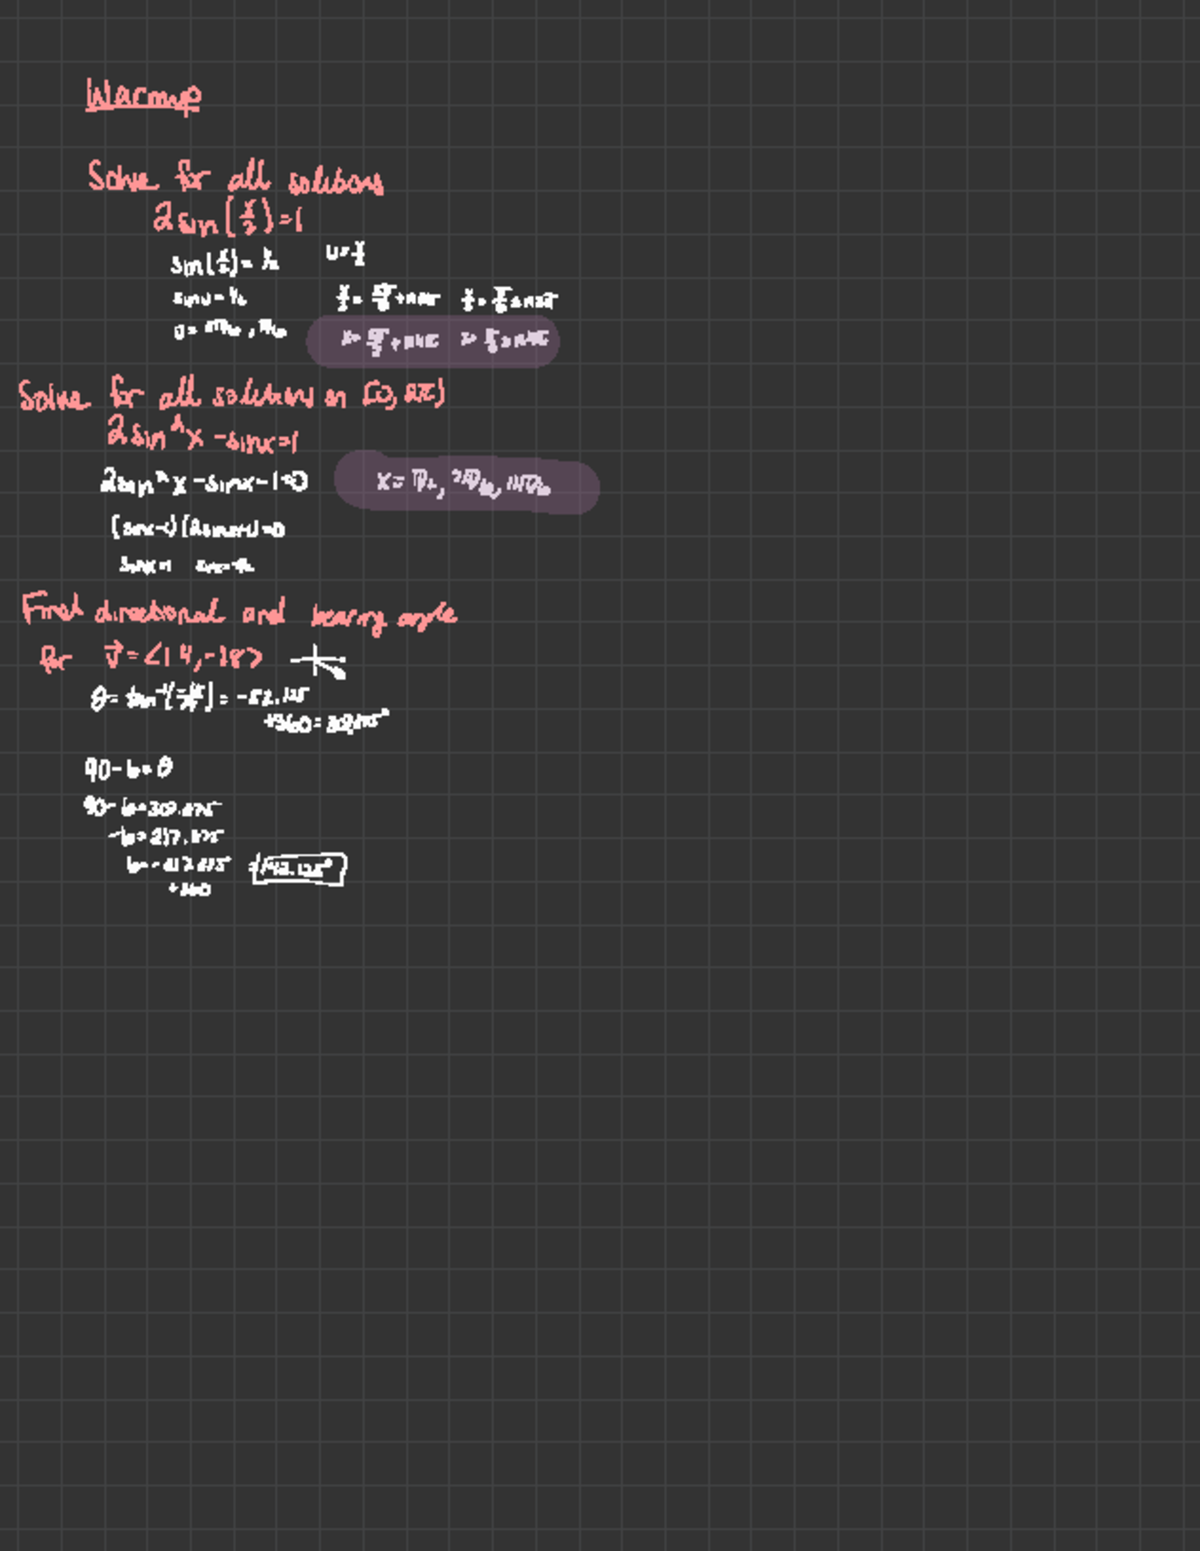 Warmup
Solve for all solutions
2sin(x/2)=1
sin(x/2)=1/2 u=x/2
sinu=1/2 x/2=5π/6+n2π x/2=π/6+n2π
u=5π/6, π/6 x=5π/3+n4π x=π/3+n4π
Solve for all solutions on [0, 2π)
2sin²x-sinx=1
2sin²x-sinx-1=0 x=π/2, 7π/6, 11π/6
(sinx-1)(2sinx+1)=0
sinx=1 sinx=-1/2
Find directional and bearing angle
for v⃗=<14,-18>
θ=tan⁻¹(-18/14)=-52.125
+360=307.875°
90-b=θ
90-b=307.875
-b=217.875
b=-217.875° =142.125°
+360